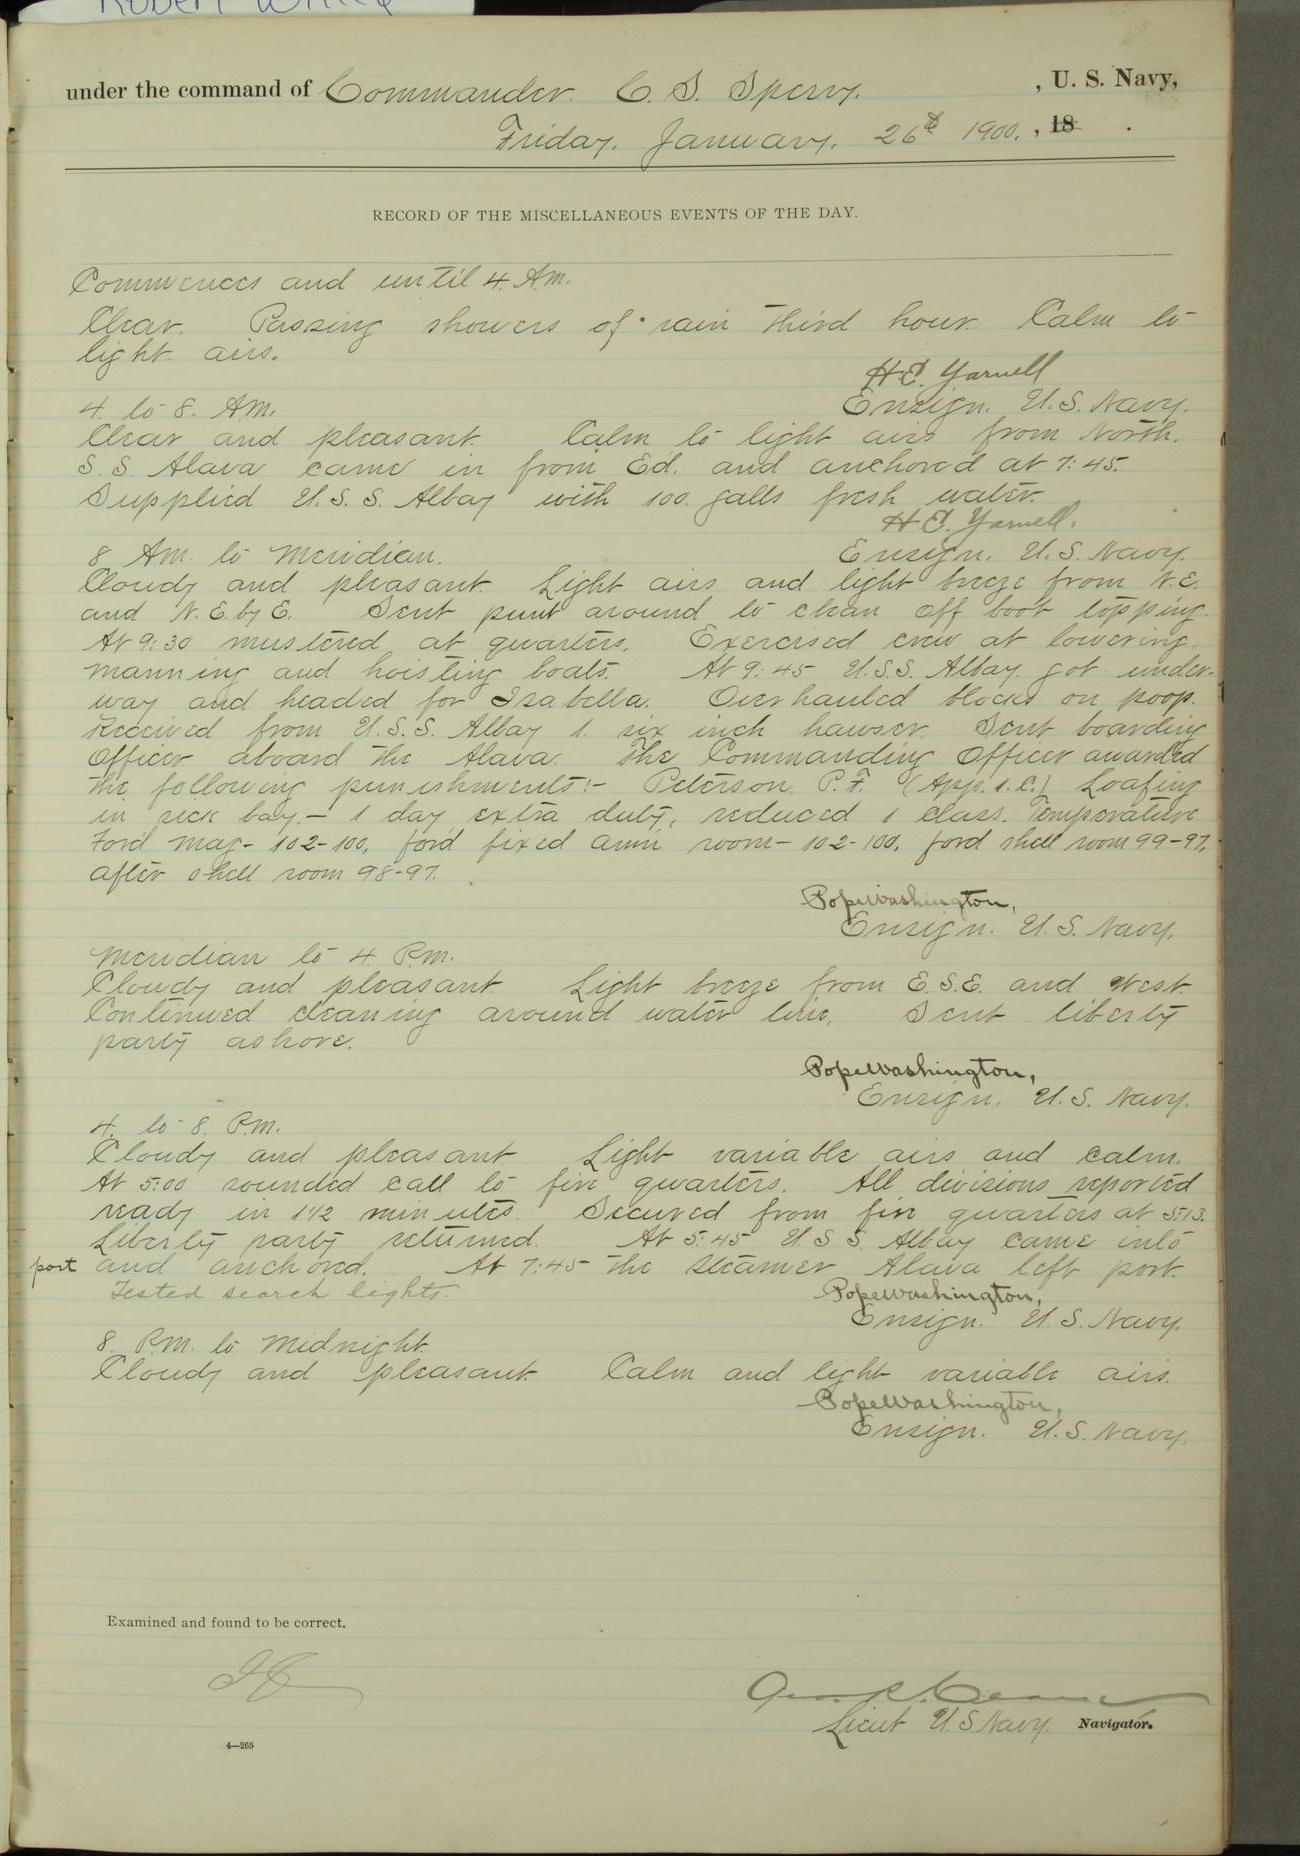 under the command of Commander. C. S. Sperry. , U. S. Navy,
Friday. January. 26th 1900. , 18 .
RECORD OF THE MISCELLANEOUS EVENTS OF THE DAY.
Commences and until 4. A.m.
Clear. Passing showers of rain third hour. Calm to
light airs.
H.E. Yarnell
Ensign. U.S. Navy.
4. to 8. A.m.
Clear and pleasant. Calm to light airs from North.
S. S. Alava came in from Ed. and anchored at 7:45.
Supplied U.S.S. Albay with 100. galls fresh water.
H.E. Yarnell.
Ensign. U.S. Navy.
8 A.m. to Meridian.
Cloudy and pleasant. Light airs and light breeze from N.E.
and N.E. by E. Sent punt around to clean off boot topping.
At 9:30 mustered at quarters. Exercised crew at lowering,
manning and hoisting boats. At 9:45 U.S.S. Albay. got under-
way and headed for Isabella. Overhauled blocks on poop.
Received from U.S.S. Albay 1. six inch hawser. Sent boarding
Officer aboard the Alava. The Commanding Officer awarded
the following punishments:- Peterson. P.F. (App. 1. C.) Loafing
in sick bay,- 1 day extra duty, reduced 1 class. Temperature
Ford mag- 102-100, ford fixed amn room- 102-100, ford shell room 99-97,
after shell room 98-97.
Pope Washington,
Ensign. U.S. Navy.
Meridian to 4. P.m.
Cloudy and pleasant. Light breeze from E.S.E. and West.
Continued cleaning around water line. Sent liberty
party ashore.
Pope Washington,
Ensign. U.S. Navy.
4. to 8. P.m.
Cloudy and pleasant. Light variable airs and calm.
At 5:00 sounded call to fire quarters. All divisions reported
ready in 1 1/2 minutes. Secured from fire quarters at 5:13.
Liberty party returned. At 5:45 U S S. Albay came into
port and anchored. At 7:45 the steamer Alava left port.
Tested search lights.
Pope Washington,
Ensign. U.S. Navy.
8. P.m. to Midnight.
Cloudy and pleasant. Calm and light variable airs.
Pope Washington,
Ensign. U.S. Navy.
Examined and found to be correct.
Lieut U S Navy. Navigator.
4—265